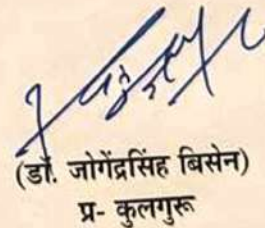 (डॉ. जोगेंद्रसिंह बिसेन)
प्र- कुलगुरू